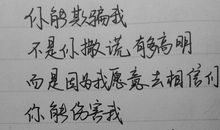 你能欺骗我
不是你撒谎有多高明
而是因为我愿意去相信你
你能伤害我